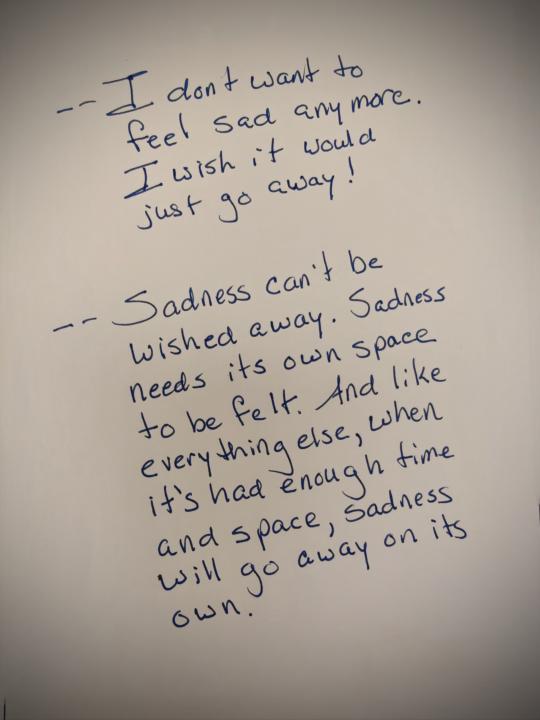 -- I dont want to
feel sad anymore.
I wish it would
just go away!
-- Sadness can't be
wished away. Sadness
needs its own space
to be felt. And like
everything else, when
it's had enough time
and space, sadness
will go away on its
own.